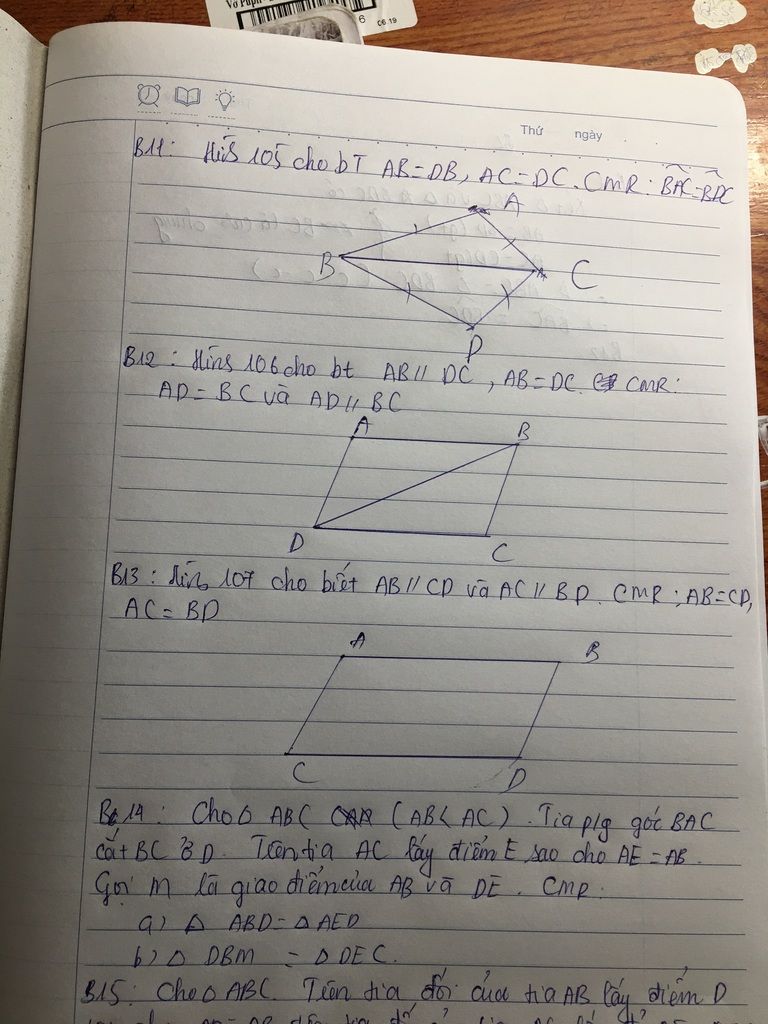 Vở Pupil
6
06.19
Thứ ngày
B11: Hình 105 cho bT AB=DB, AC=DC. CMR: BAC=BDC
A
B
C
D
B12: Hình 106 cho bt AB // DC, AB=DC. CMR:
AD=BC và AD // BC
A B
D C
B13: Hình 107 cho biết AB // CD và AC // BD. CMR: AB=CD,
AC=BD
A B
C D
B14: Cho △ ABC (AB< AC). Tia p/g góc BAC
cắt BC ở D. Trên tia AC lấy điểm E sao cho AE=AB.
Gọi M là giao điểm của AB và DE. CMR:
a) △ ABD=△ AED
b) △ DBM = △ DEC.
B15: Cho △ ABC. Trên tia đối của tia AB lấy điểm D